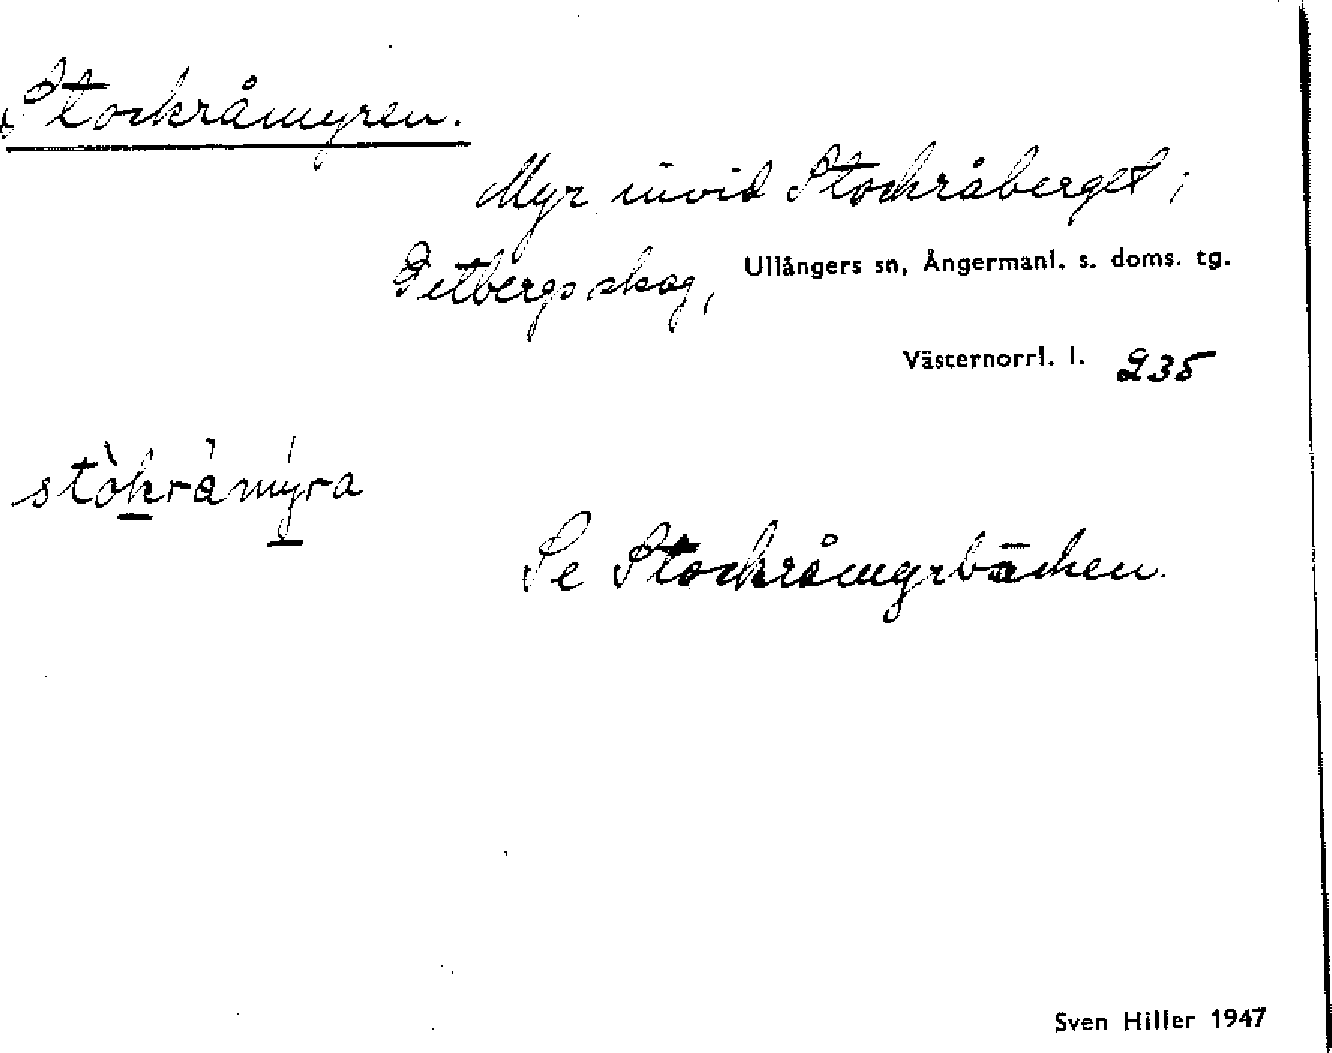 Stockråmyren.
Myr invid Stockråberget;
Getbergs skog, Ullångers sn, Ångermanl. s. doms. tg.
Västernorrl. l. 235
stòkråmýra
Se Stockråmyrbäcken.
Sven Hiller 1947